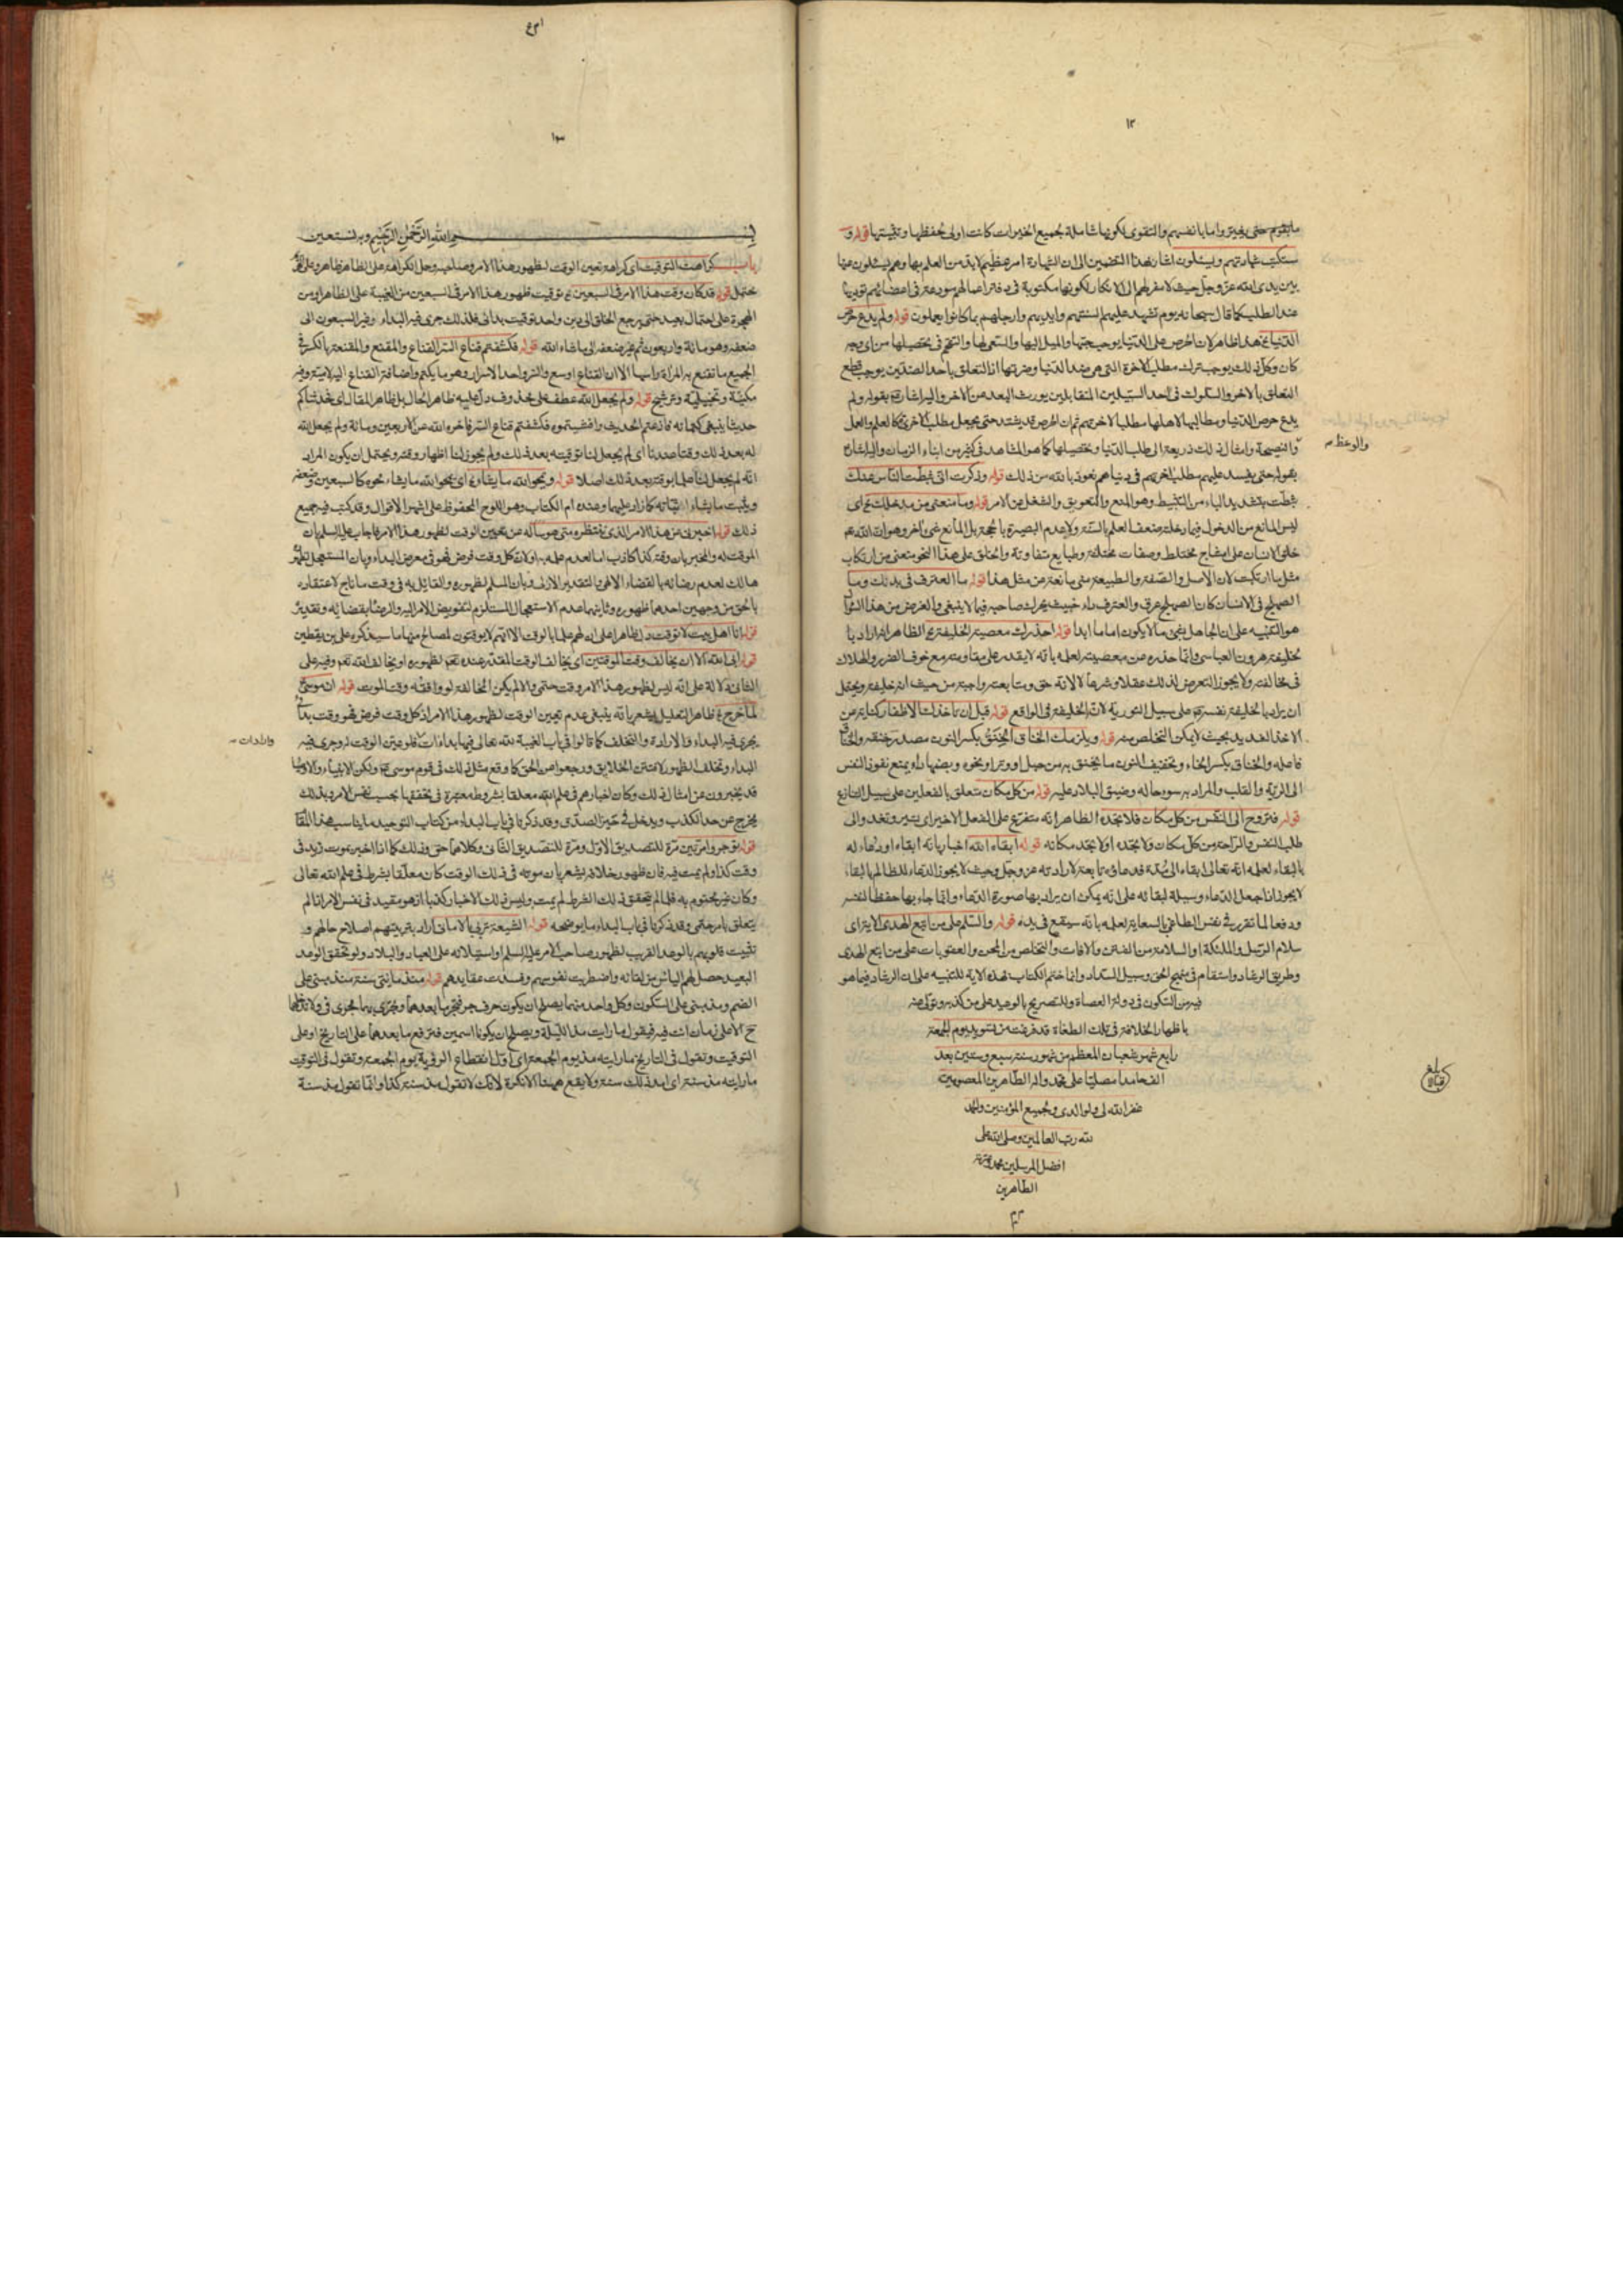 ١٢
ما بقوم حتى يغيروا ما بانفسهم والتقوى لكونها شاملة بجميع الخيرات كانت اولى بحفظها وتثبيتها قوله و
ستكتب شهادتهم ويسئلون اشار بهذا التضمين الى ان الشهادة امر عظيم لابد من العلم بها وهم يسئلون عنها
بين يدى الله عز وجل حيث لا مفر لهم الى الانكار لكونها مكتوبة فى دفتر اعمالهم مودعة فى اعضائهم
عند الطلب كما قال سبحانه يوم تشهد عليهم السنتهم وايديهم وارجلهم بما كانوا يعملون قوله ولم يدع حرص
الدنيا هذا ظاهر لان الحرص على الدنيا يوجب حبها والميل اليها والسعى لها والتهم فى تحصيلها من اى وجه
كان وكل ذلك يوجب ترك مطلب الاخرة التى هى ضد الدنيا وضرتها اذ التعلق باحد الضدين يوجب قطع
التعلق بالاخر والسلوك فى احد السبيلين المتقابلين يورث البعد من الاخر واليه اشار بقوله ولم
يدع حرص الدنيا ومطالبها لاهلها مطلبا لاخرتهم ثم ان الحرص قد يشتد حتى يجعل مطلب الاخرة كالعلم والعمل
والنصيحة وامثال ذلك ذريعة الى طلب الدنيا وتحصيلها كما هو المشاهد فى كثير من ابناء الزمان واليه اشار
والوعظ
بقوله حتى يفسد عليهم مطلب اخرتهم فى دنياهم نعوذ بالله من ذلك قوله وذكرت انى ثبطت الناس عنك
ثبطت بتشديد الباء من التثبيط وهو المنع والتعويق والشغل عن الامر قوله وما منعنى من مدخلك اى
ليس المانع من الدخول فيما دخلت ضعف العلم بالسنة ولا عدم البصيرة بالحجة بل المانع شىء آخر وهو ان الله
خلق الانسان على امشاج مختلط وصفات مختلفة وطبايع متفاوتة والخلق على هذا النحو منعنى من ارتكاب
مثل ما ارتكبت لان الاصل والصفة والطبيعة منى مانعة من مثل هذا قوله ما العترف فى بدنك وما
الصهلج فى الانسان كان الصهلج عرق والعترف داء خبيث يحرك صاحبه فيما لا ينبغى والغرض من هذا السؤال
هو التنبيه على ان الجاهل بشىء ما لا يكون اماما ابدا قوله احذرك معصية الخليفة الظاهر انه اراد با
لخليفة هرون العباسى وانما حذره من معصيته لعلمه بانه لا يقدر على مقاومته مع خوف الضرر والهلاك
فى مخالفته ولا يجوز التعرض لذلك عقلا وشرعا لا لانه حق ومتابعته واجبة من حيث انه خليفة ويحتمل
ان يراد بالخليفة نفسه على سبيل التورية لانه الخليفة فى الواقع قوله قبل ان تاخذك الاظفار كناية عن
الاخذ الشديد بحيث لا يمكن التخلص منه قوله ويلزمك الخناق الخنق بكسر النون مصدر خنقه
فاصله والخناق بكسر الخاء وتخفيف النون ما يخنق به من حبل او وتر او نحوه وبضمها داء يمنع نفوذ النفس
الى الرية والقلب والمراد به سوء حاله وضيق البلاد عليه قوله من كل مكان متعلق بالفعلين على سبيل التنازع
قوله فتروح الى النفس من كل مكان فلا تجده الظاهر انه متفرع على الفعل الاخير
طلب النفس والراحة من كل مكان ولا تجده او لا تجد مكانه قوله ابقاه الله اخبار بانه ابقاه او دعاء له
بالبقاء لعلمه انه تعالى ابقاه الى مدة فدعاؤه تابعة لارادته عز وجل وحيث لا يجوز الدعاء للظالم بالبقاء
لا يجوز انا جعل الدعاء وسيلة لبقائه على انه يمكن ان يراد بها صورة الدعاء وانما جاء بها حفظا لنفسه
ودفعا لما تقرر فى نفس الطاغى بالسعاية لعلمه بانه سيقع فى يده قوله والسلم على من اتبع الهدى
سلام الرسل والملئكة او السلامة من الفتن والافات والتخلص من المحن والعقوبات على من اتبع الهدى
وطريق الرشاد واستقام فى منهج الحق وسبيل السداد وانما ختم الكتاب بهذه الاية للتنبيه على ان الرشاد فيما هو
فيه من السكون فى دولة العصاة وللتصريح بالوعيد على من كذبه وتولى عنه
باظهار الخلافة فى تلك الطغاة قد فرغت من تسويده يوم الجمعة
رابع شهر شعبان المعظم من شهور سنة سبع وستين بعد
الف حامدا مصليا على محمد واله الطاهرين المعصومين
غفر الله لى ولوالدى ولجميع المؤمنين والحمد
لله رب العالمين وصلى الله على
افضل المرسلين محمد وعترته
الطاهرين
بلغ
بسم الله الرحمن الرحيم وبه نستعين
باب كراهية التوقيت اى كراهة تعين الوقت لظهور هذا الامر وصاحبه وحمل الكراهة على الظاهر ظاهر وعلى
يحتمل قوله قد كان وقت هذا الامر فى السبعين توقيت ظهور هذا الامر فى السبعين من الغيبة على الظاهر او من
الهجرة على احتمال بعيد حتى يرجع الخلق الى دين واحد توقيت بدائى فلذلك جرى فيه البداء وغير السبعون الى
ضعفه وهو مائة واربعون ثم غير ضعفه الى ما شاء الله قوله فكشفتم قناع الستر القناع والمقنع والمقنعة بالكسر فى
الجميع ما تقنع به المراة راسها الا ان القناع اوسع والستر واحد الاستار وهو ما يكتم واضافة القناع اليه
مكنية وتخييلية وترشيح قوله ولم يجعل الله عطف على محذوف دل عليه ظاهر الحال بل ظاهر المقال اى فحدثناكم
حديثا ينبغى كتمانه فاذعتم الحديث وافشيتموه فكشفتم قناع الستر فاخره الله عن الاربعين ومائة ولم يجعل الله
له بعد ذلك وقتا عندنا اى لم يجعل لنا توقيته بعد ذلك ولم يجوز لنا اظهار وقته ويحتمل ان يكون المراد
انه لم يجعل لنا علما بوقته بعد ذلك اصلا قوله ويمحو الله ما يشاء اى يمحو الله ما يشاء محوه كالسبعين وضعفه
ويثبت ما يشاء اثباته وعنده ام الكتاب وهو اللوح المحفوظ على اشهر الاقوال وقد كتب فيه جميع
ذلك قوله اخبرنى عن هذا الامر الذى ننتظره متى هو سأله عن تعيين الوقت لظهور هذا الامر فاجاب عليه السلم بان
الموقت له والمخبر بان وقته كذا كاذب اما لعدم علمه به او لان كل وقت فرض فهو فى معرض البداء وبان المستعجل
هالك لعدم رضائه بالقضاء الالهى والتقدير الازلى وبان المسلم لظهوره والقائل به فى وقت ما ناج لاعتقاده
بالحق من وجهين احدهما ظهوره وثانيهما عدم الاستعجال المستلزم لتفويض الامر اليه والرضا بقضائه وتقديره
قوله انا اهل بيت لا نوقت دل ظاهرا على ان لهم علما بالوقت الا انهم لا يوقتون لمصالح منها ما سيذكره على بن يقطين
قوله ابى الله الا ان يخالف وقت الموقتين اى يخالف الوقت المقدر عنده لظهوره او يخالف الله وفيه على
الثانى دلالة على انه ليس لظهور هذا الامر وقت حتمى والا لم يكن المخالفة لو وافقه وقت الموت قوله ان موسى
لما خرج ظاهر التعليل يشعر بانه ينبغى عدم تعيين الوقت لظهور هذا الامر اذ كل وقت فرض فهو وقت بدائى
يجرى فيه البداء والارادة والتخلف كما قالوا فى باب الغيبة لله تعالى فيها بداءات فلو عين الوقت له وجرى فيه
وارادات
البداء وتخلف الظهور لافتتن الخلايق ورجعوا عن الحق كما وقع مثل ذلك فى قوم موسى ولكن الانبياء والاوصيا
قد يخبرون عن امثال ذلك وكان اخبارهم فى علم الله معلقا بشروط معتبرة فى تحققها بحسب نفس الامر وبذلك
يخرج عن حد الكذب ويدخل فى حيز الصدق وقد ذكرنا فى باب البداء من كتاب التوحيد ما يناسب هذا المقام
قوله توجروا مرتين مرة للتصديق الاول ومرة للتصديق الثانى وكلاهما حق وذلك كما اذا اخبر بموت زيد فى
وقت كذا ولم يمت فيه فان ظهور خلافه يشعر بان موته فى ذلك الوقت كان معلقا بشرط فى علم الله تعالى
وكان غير محتوم به فلما لم يتحقق ذلك الشرط لم يمت وليس ذلك الاخبار كذبا اذ هو مقيد فى نفس الامر
يتعلق بامر حتمى وقد ذكرنا فى باب البداء ما يوضحه قوله الشيعة تربى بالامانى اراد بتربيتهم اصلاح حالهم و
تثبيت قلوبهم بالوعد القريب لظهور صاحب الامر عليه السلم واستيلائه على العباد والبلاد ولو تحقق الوعد
البعيد حصل لهم الياس من لقائه واضطربت نفوسهم وفسدت عقايدهم قوله منذ مائتى سنة منذ مبنى على
الضم ومذ مبنى على السكون وكل واحد منهما يصلح ان يكون حرف جر فتجر ما بعدهما وتجرى بهما مجرى فى
الا على زمان انت فيه فيقول ما رايت مذ الليلة ويصلحان يكونا اسمين فترفع ما بعدهما على التاريخ او على
التوقيت وتقول فى التاريخ ما رايته مذ يوم الجمعة اى اول انقطاع الروية يوم الجمعة وتقول فى التوقيت
ما رايته مذ سنة اى امد ذلك سنة ولا يقع ههنا الا نكرة لانك لا تقول مذ سنة كذا وانما تقول مذ سنة